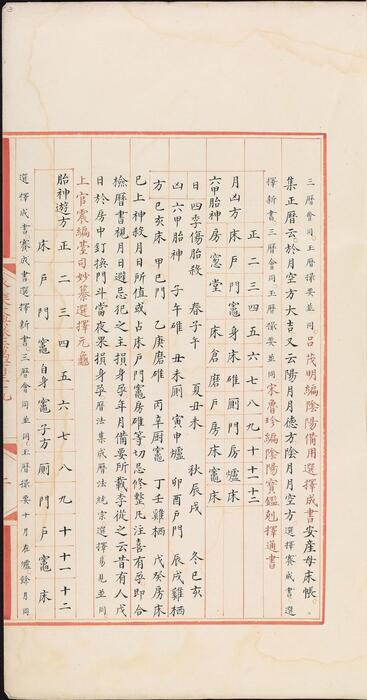 三曆會同玉曆撮要並同呂茂明編陰陽備用選擇成書安産母床帳
集正曆云於月空方大吉又云陽月月德方陰月月空方選擇賽成書選
擇新書三曆會同玉曆撮要並同宋魯珍編陰陽寶鑑剋擇通書
正二三四五六七八九十十一十二
月凶方床戶門竈身床碓厠門房爐床
六甲胎神房窓堂倉磨戶房床竈床
日四季傷胎殺春子午夏丑未秋辰戌冬巳亥
凶六甲胎神子午碓丑未厠寅申爐卯酉戶門辰戌雞栖
方巳亥床甲巳門乙庚磨碓丙辛厨竈丁壬雞栖戊癸房床
巳上神殺月日所值或占床戶門竈房碓等切忌修整凡注喜有孕即合
檢曆書視月日避忌犯之主損身孕年月備要所載李從之云昔有人戊
日於房中釘換門斗當夜果損身孕曆法集成曆法統宗選擇易見並同
上官震編堂司妙纂選擇元龜
正二三四五六七八九十十一十二
胎神遊方床戶門竈自身竈子方厠門戶竈床
選擇成書賽成書選擇新書三曆會同並同玉曆撮要十月在爐餘月同